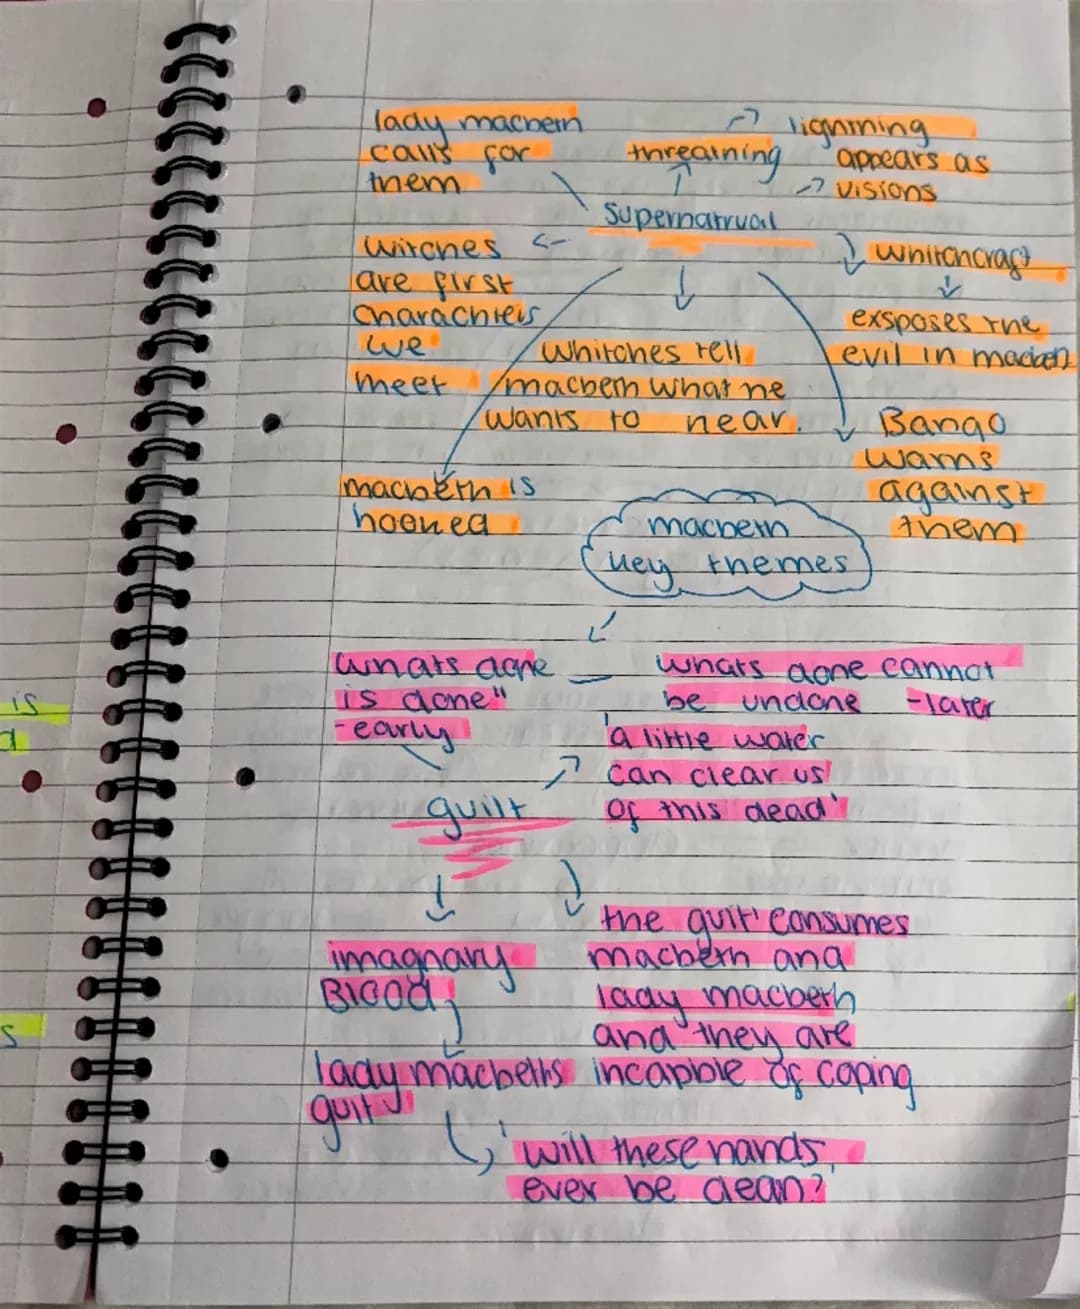 lady macbeth
calls for
them
threatning
lightning
appears as
visions
Supernatrual
witches
are first
charachters
we
meet
whitchcraft
exsposes the
evil in macbeth
whitches tell
macbeth what he
wants to hear.
Banqo
warns
against
them
macbeth is
hooked
macbeth
key themes
whats done
is done"
-early
whats done cannot
be undone -later
'a little water
can clear us
of this dead'
guilt
imagnary
Blood
the guilt consumes
macbeth and
lady macbeth
and they are
incapble of coping
lady macbeths
guilt
'will these hands
ever be clean?
is
d
s